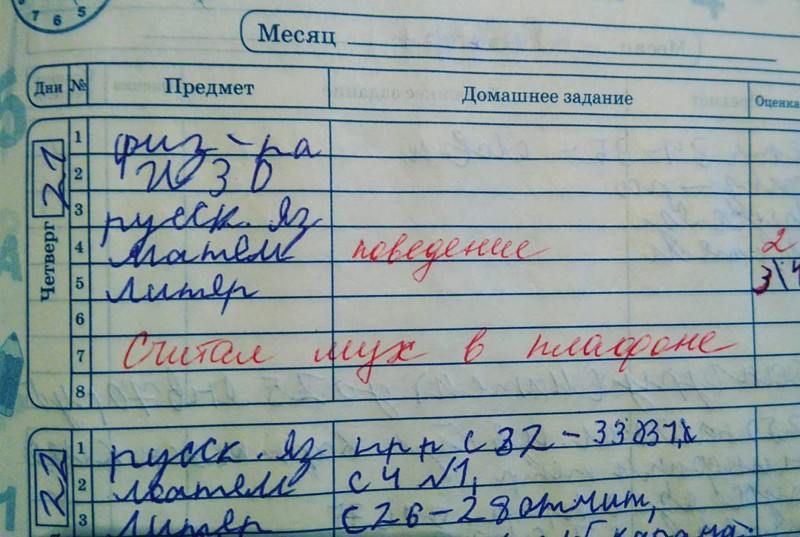 7 6 5
Месяц
Дни № Предмет Домашнее задание Оценка
Четверг 21
1 физ-ра
2 ИЗО
3 русск. яз
4 матем поведение 2
5 литер 3\4
6
7 Считал мух в плафоне
8
22
1 русск. яз с 32-33
2 матем с 4 №1,
3 литер с 26-28